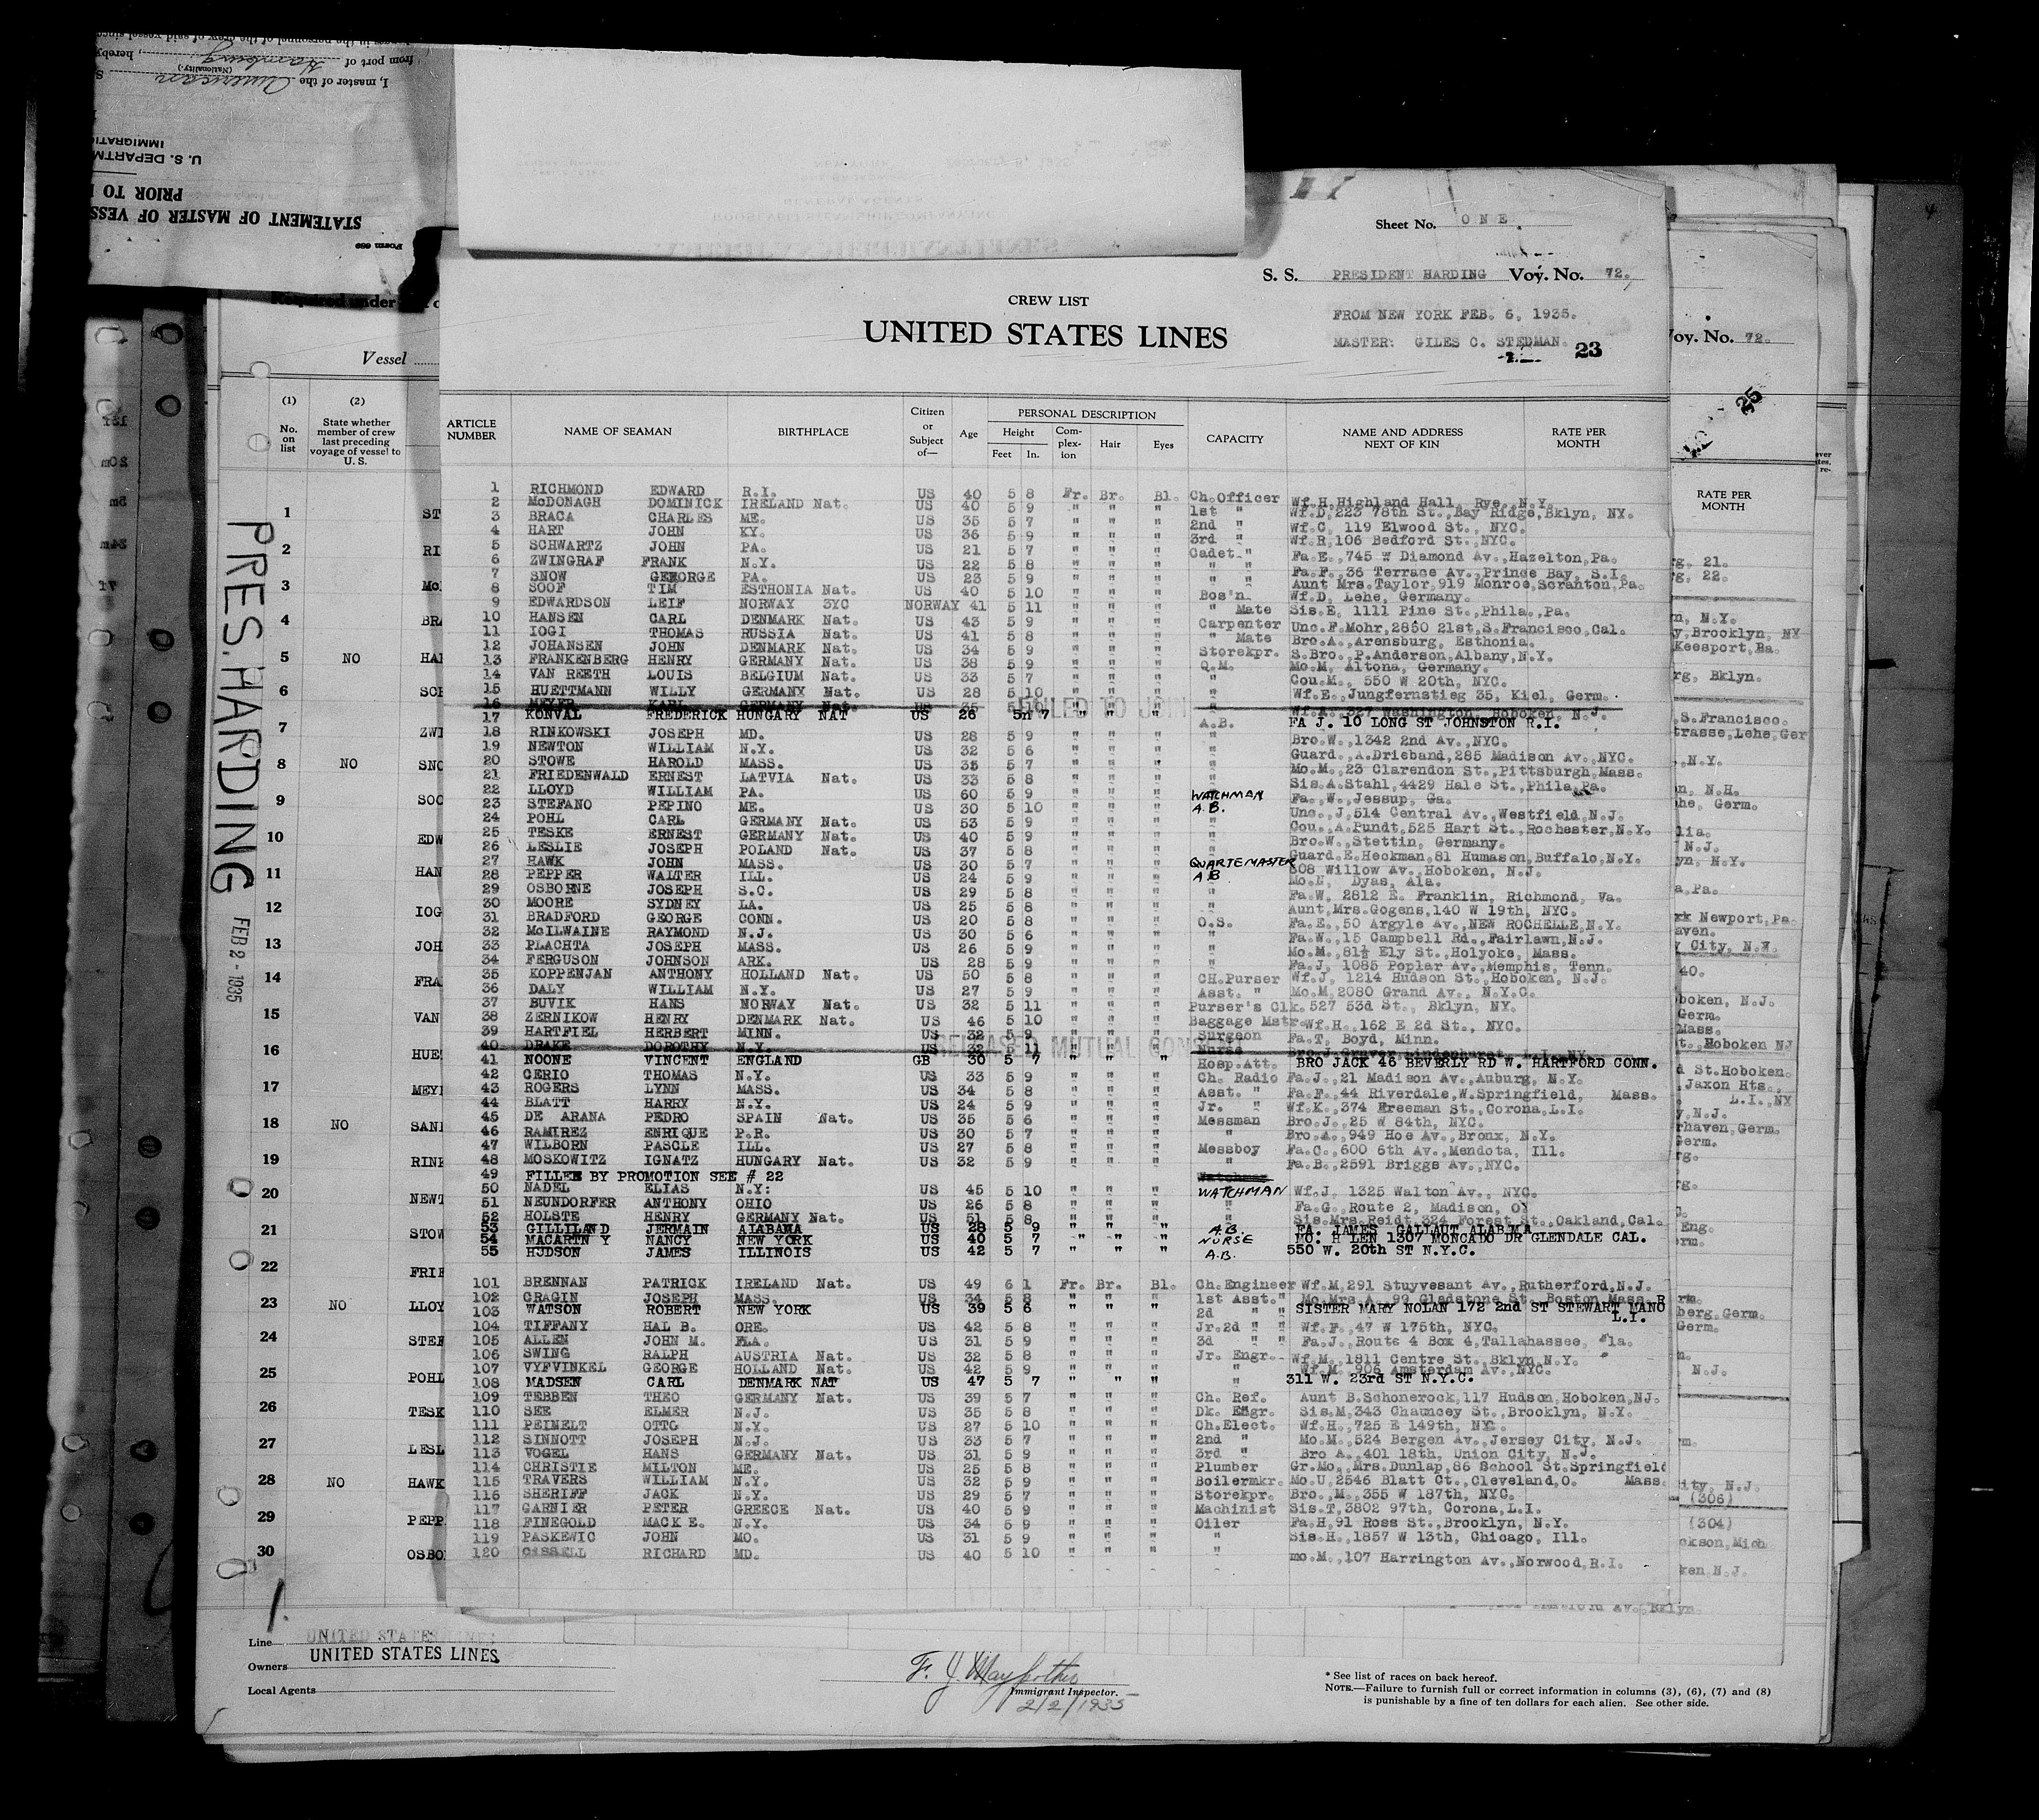 Sheet No. O N E.
S. S. PRESIDENT HARDING Voy. No. 72.
CREW LIST
FROM NEW YORK FEB. 6, 1935.
UNITED STATES LINES
MASTER: GILES C. STEDMAN.
23
ARTICLE NUMBER NAME OF SEAMAN BIRTHPLACE Citizen or Subject of— Age PERSONAL DESCRIPTION Height Feet In. Complexion Hair Eyes CAPACITY NAME AND ADDRESS NEXT OF KIN RATE PER MONTH
1 RICHMOND EDWARD R.I. US 40 5 8 Fr. Br. Bl. Ch.Officer Wf.H.Highland Hall, Rye, N.Y.
2 McDONAGH DOMINICK IRELAND Nat. US 40 5 9 " " " 1st " Wf.D.223 78th St.,Bay Ridge,Bklyn, NY.
3 BRACA CHARLES ME. US 35 5 7 " " " 2nd " Wf.C. 119 Elwood St., NYC.
4 HART JOHN KY. US 36 5 9 " " " 3rd " Wf.R.106 Bedford St.,NYC.
5 SCHWARTZ JOHN PA. US 21 5 7 " " " Cadet " Fa.E.,745 W Diamond Av.,Hazelton,Pa.
6 ZWINGRAF FRANK N.Y. US 22 5 8 " " " " " Fa.F.,36 Terrace Av.,Prince Bay, S.I.
7 SNOW GEEORGE PA. US 23 5 9 " " " " " Aunt Mrs.Taylor,919 Monroe,Scranton,Pa.
8 SOOF TIM ESTHONIA Nat. US 40 5 10 " " " Bos'n. Wf.D. Lehe, Germany.
9 EDWARDSON LEIF NORWAY 3YC NORWAY 41 5 11 " " " " Mate Sis.E. 1111 Pine St.,Phila.,Pa.
10 HANSEN CARL DENMARK Nat. US 43 5 9 " " " Carpenter Unc.F.Mohr,2860 21st,S.Francisco,Cal.
11 IOGI THOMAS RUSSIA Nat. US 41 5 8 " " " " Mate Bro.A.,Arensburg, Esthonia.
12 JOHANSEN JOHN DENMARK Nat. US 34 5 9 " " " Storekpr. S.Bro., P.Anderson,Albany,N.Y.
13 FRANKENBERG HENRY GERMANY Nat. US 38 5 9 " " " Q.M. Mo.M. Altona, Germany.
14 VAN REETH LOUIS BELGIUM Nat. US 33 5 7 " " " " Cou.M., 550 W 20th, NYC.
15 HUETTMANN WILLY GERMANY Nat. US 28 5 10 " " " " Wf.E.,Jungfernstieg 35, Kiel, Germ.
16 MEYER KARL GERMANY Nat. US 35 FAILED TO JOIN Wf.A.,327 Washington, Hoboken, N.J.
17 KONVAL FREDERICK HUNGARY NAT US 26 5n 7 " " " A.B. FA J. 10 LONG ST JOHNSTON R.I.
18 RINKOWSKI JOSEPH MD. US 28 5 9 " " " " Bro.W.,1342 2nd Av.,NYC.
19 NEWTON WILLIAM N.Y. US 32 5 6 " " " " Guard.,A.Drieband,285 Madison Av.,NYC.
20 STOWE HAROLD MASS. US 35 5 7 " " " " Mo.M.,23 Clarendon St.,Pittsburgh,Mass.
21 FRIEDENWALD ERNEST LATVIA Nat. US 33 5 8 " " " " Sis.A.Stahl,4429 Hale St.,Phila,Pa.
22 LLOYD WILLIAM PA. US 60 5 9 " " " WATCHMAN Fa.,W.,Jessup, Ga.
23 STEFANO PEPINO ME. US 30 5 10 " " " A.B. Unc.,J.514 Central Av.,Westfield,N.J.
24 POHL CARL GERMANY Nat. US 53 5 9 " " " " Cou.,A.Pundt,525 Hart St.,Rochester,N.Y.
25 TESKE ERNEST GERMANY Nat. US 40 5 9 " " " " Bro.W.,Stettin, Germany.
26 LESLIE JOSEPH POLAND Nat. US 37 5 8 " " " " Guard.E.Heckman,81 Humason,Buffalo,N.Y.
27 HAWK JOHN MASS. US 30 5 7 " " " QUARTEMASTER 808 Willow Av.,Hoboken, N.J.
28 PEPPER WALTER ILL. US 24 5 9 " " " A B Mo.E, Dyas, Ala.
29 OSBORNE JOSEPH S.C. US 29 5 8 " " " " Fa.W. 2812 E. Franklin, Richmond, Va.
30 MOORE SYDNEY LA. US 25 5 8 " " " " Aunt,Mrs.Gogens,140 W 19th, NYC.
31 BRADFORD GEORGE CONN. US 20 5 8 " " " O.S. Fa.E.,50 Argyle Av.,NEW ROCHELLE,N.Y.
32 McILWAINE RAYMOND N.J. US 30 5 6 " " " " Fa.W.,15 Campbell Rd.,Fairlawn,N.J.
33 PLACHTA JOSEPH MASS. US 26 5 9 " " " " Mo.M.,81½ Ely St.,Holyoke, Mass.
34 FERGUSON JOHNSON ARK. US 28 5 9 " " " " Fa.J. 1085 Poplar Av.,Memphis, Tenn.
35 KOPPENJAN ANTHONY HOLLAND Nat. US 50 5 8 " " " CH.Purser Wf.J. 1214 Hudson St.,Hoboken, N.J.
36 DALY WILLIAM N.Y. US 27 5 9 " " " Asst. " Mo.M.2080 Grand Av., N.Y.C.
37 BUVIK HANS NORWAY Nat. US 32 5 11 " " " Purser's Clk. 527 53d St., Bklyn, NY.
38 ZERNIKOW HENRY DENMARK Nat. US 46 5 10 " " " Baggage Mstr. Wf.H.,162 E 2d St., NYC.
39 HARTFIEL HERBERT MINN. US 32 5 9 " " " Surgeon Fa.T, Boyd, Minn.
40 DRAKE DOROTHY N.Y. US 32 5 11 Nurse
41 NOONE VINCENT ENGLAND GB 30 5 7 " " " Hosp.Att. BRO JACK 46 BEVERLY RD W. HARTFORD CONN.
42 CERIO THOMAS N.Y. US 33 5 9 " " " Ch. Radio Fa.J.,21 Madison Av.,Auburg, N.Y.
43 ROGERS LYNN MASS. US 34 5 8 " " " Asst. " Fa.F.,44 Riverdale,W.Springfield, Mass.
44 BLATT HARRY N.Y. US 24 5 9 " " " Jr. " Wf.K.,374 Freeman St.,Corona,L.I.
45 DE ARANA PEDRO SPAIN Nat. US 35 5 6 " " " Messman Bro.J.,25 W 84th, NYC.
46 RAMIREZ ENRIQUE P.R. US 30 5 7 " " " " Bro.A.,949 Hoe Av.,Bronx, N.Y.
47 WILBORN PASCLE ILL. US 27 5 8 " " " Messboy Fa.C.,600 6th Av.,Mendota, Ill.
48 MOSKOWITZ IGNATZ HUNGARY Nat. US 32 5 9 " " " " Fa.B.,2591 Briggs Av.,NYC.
49 FILLED BY PROMOTION SEE # 22
50 NADEL ELIAS N.Y. US 45 5 10 " " " WATCHMAN Wf.J. 1325 Walton Av., NYC.
51 NEUNDORFER ANTHONY OHIO US 26 5 8 " " " " Fa.G., Route 2, Madison, O.
52 HOLSTE HENRY GERMANY Nat. US 51 5 8 " " " " Sis.Mrs.Reidt,324 Forest St.,Oakland,Cal.
53 GILLILAND JERMAIN ALABAMA US 28 5 9 " " " A.B. FA. JAMES GALLAUT ALABMA
54 MACARTN Y NANCY NEW YORK US 40 5 7 " " " NURSE MO. H LEN 1307 MONCADO DR GLENDALE CAL.
55 HUDSON JAMES ILLINOIS US 42 5 7 " " " A.B. 550 W. 20th ST N.Y.C.
101 BRENNAN PATRICK IRELAND Nat. US 49 6 1 Fr. Br. Bl. Ch.Engineer Wf.M.291 Stuyvesant Av.,Rutherford,N.J.
102 CRAGIN JOSEPH MASS. US 34 5 8 " " " 1st Asst." Mo.Mrs.A. 99 Gladstone St. Boston Mass.
103 WATSON ROBERT NEW YORK US 39 5 6 " " " 2d " " SISTER MARY NOLAN 172 2nd ST STEWART MANOR L.I.
104 TIFFANY HAL B. ORE. US 42 5 8 " " " Jr.2d " " Wf.F.,47 W 175th, NYC.
105 ALLEN JOHN M. FLA. US 31 5 9 " " " 3d " " Fa.J., Route 4 Box 4,Tallahassee, Fla.
106 SWING RALPH AUSTRIA Nat. US 32 5 8 " " " Jr. Engr. Wf.M.,1811 Centre St.,Bklyn,N.Y.
107 VYFVINKEL GEORGE HOLLAND Nat. US 42 5 9 " " " " Wf.M. 906 Amsterdam Av.,NYC.
108 MADSEN CARL DENMARK NAT US 47 5 7 " " " " 311 W. 23rd ST N.Y.C.
109 TEBBEN THEO GERMANY Nat. US 39 5 7 " " " Ch. Ref. Aunt B.Schonerock,117 Hudson,Hoboken,NJ.
110 SEE ELMER N.J. US 35 5 8 " " " Dk. Engr. Sis.M.343 Chauncey St.,Brooklyn, N.Y.
111 PEINELT OTTO N.Y. US 27 5 10 " " " Ch.Elect. Wf.H.,725 E 149th, NYC.
112 SINNOTT JOSEPH N.J. US 33 5 7 " " " 2nd " Mo.M.,524 Bergen Av.,Jersey City, N.J.
113 VOGEL HANS GERMANY Nat. US 31 5 9 " " " 3rd " Bro A.,401 18th, Union City, N.J.
114 CHRISTIE MILTON ME. US 25 5 8 " " " Plumber Gr.Mo.,Mrs.Dunlap,86 School St.Springfield Mass
115 TRAVERS WILLIAM N.Y. US 32 5 9 " " " Boilermkr. Mo.U,2546 Blatt Ct.,Cleveland,O.
116 SHERIFF JACK N.Y. US 29 5 7 " " " Storekpr. Bro.,M.,355 W 187th, NYC.
117 GARNIER PETER GREECE Nat. US 40 5 9 " " " Machinist Sis.T,3802 97th, Corona,L.I.
118 FINEGOLD MACK E. N.Y. US 34 5 9 " " " Oiler Fa.H,91 Ross St.,Brooklyn, N.Y.
119 PASKEWIC JOHN MO. US 31 5 9 " " " " Sis.H.,1857 W 13th, Chicago, Ill.
120 CASSELL RICHARD MD. US 40 5 10 " " " " mo.M.,107 Harrington Av.,Norwood,R.I.
STATEMENT OF MASTER OF VESS
PRIOR TO
U. S. DEPARTM
IMMIGRATIO
I, master of the American
(Nationality.)
from port of Hamburg, hereby
Form 689
Required under
Vessel
(1) No. on list
(2) State whether member of crew last preceding voyage of vessel to U. S.
1 ST
2 RI
3 Mc
4 BRA
5 NO HAR
6 SCH
7 ZWI
8 NO SNO
9 SOO
10 EDW
11 HAN
12 IOG
13 JOH
14 FRA
15 VAN
16 HUE
17 MEY
18 NO SAN
19 RIN
20 NEWT
21 STOW
22 FRIE
23 NO LLOY
24 STEF
25 POHL
26 TESK
27 LESL
28 NO HAWK
29 PEPP
30 OSBO
PRES. HARDING
FEB 2 - 1935
Line UNITED STATES LINES
Owners UNITED STATES LINES
Local Agents
Immigrant Inspector.
2/2/1935
* See list of races on back hereof.
NOTE.—Failure to furnish full or correct information in columns (3), (6), (7) and (8)
is punishable by a fine of ten dollars for each alien. See other side.
Voy. No. 72.
25
RATE PER MONTH
(306)
(304)